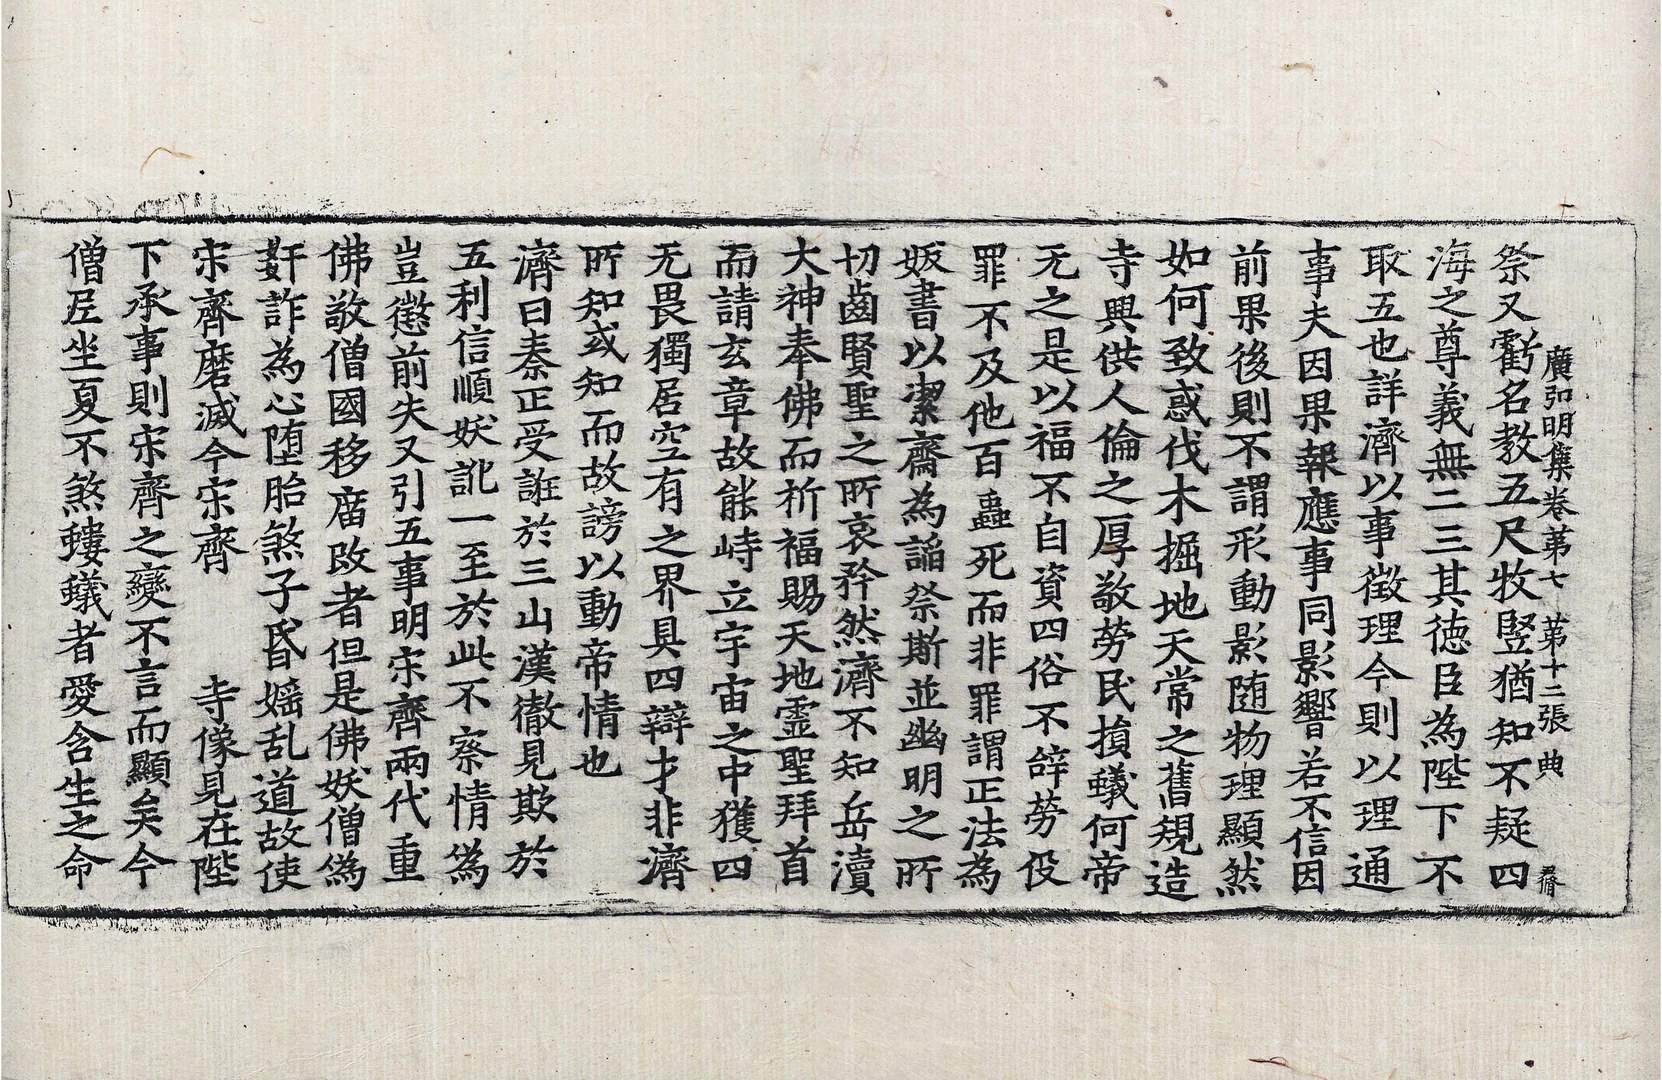 廣弘明集卷第七 第十二張 典
祭又虧名教五尺牧竪猶知不疑四
海之尊義無二三其徳臣為陛下不
取五也詳濟以事徵理今則以理通
事夫因果報應事同影響若不信因
前果後則不謂形動影随物理顯然
如何致惑伐木掘地天常之舊䂓造
寺興供人倫之厚敬勞民損蟻何帝
无之是以福不自資四俗不辝勞役
罪不及他百䖝死而非罪謂正法為
妭書以潔齋為諂祭斯並幽明之所
切齒賢聖之所哀矜然濟不知岳瀆
大神奉佛而祈福賜天地霊聖拜首
而請玄章故能峙立宇宙之中獲四
无畏獨居空有之界具四辯才非濟
所知或知而故謗以動帝情也
濟曰秦正受誑於三山漢徹見欺於
五利信順妖訛一至於此不察情為
豈懲前失又引五事明宋齊兩代重
佛敬僧國移庿改者但是佛妖僧為
姧詐為心堕胎煞子昏婬乱道故使
宋齊磨滅今宋齊 寺像見在陛
下承事則宋齊之變不言而顯矣今
僧尼坐夏不煞螻蟻者愛含生之命